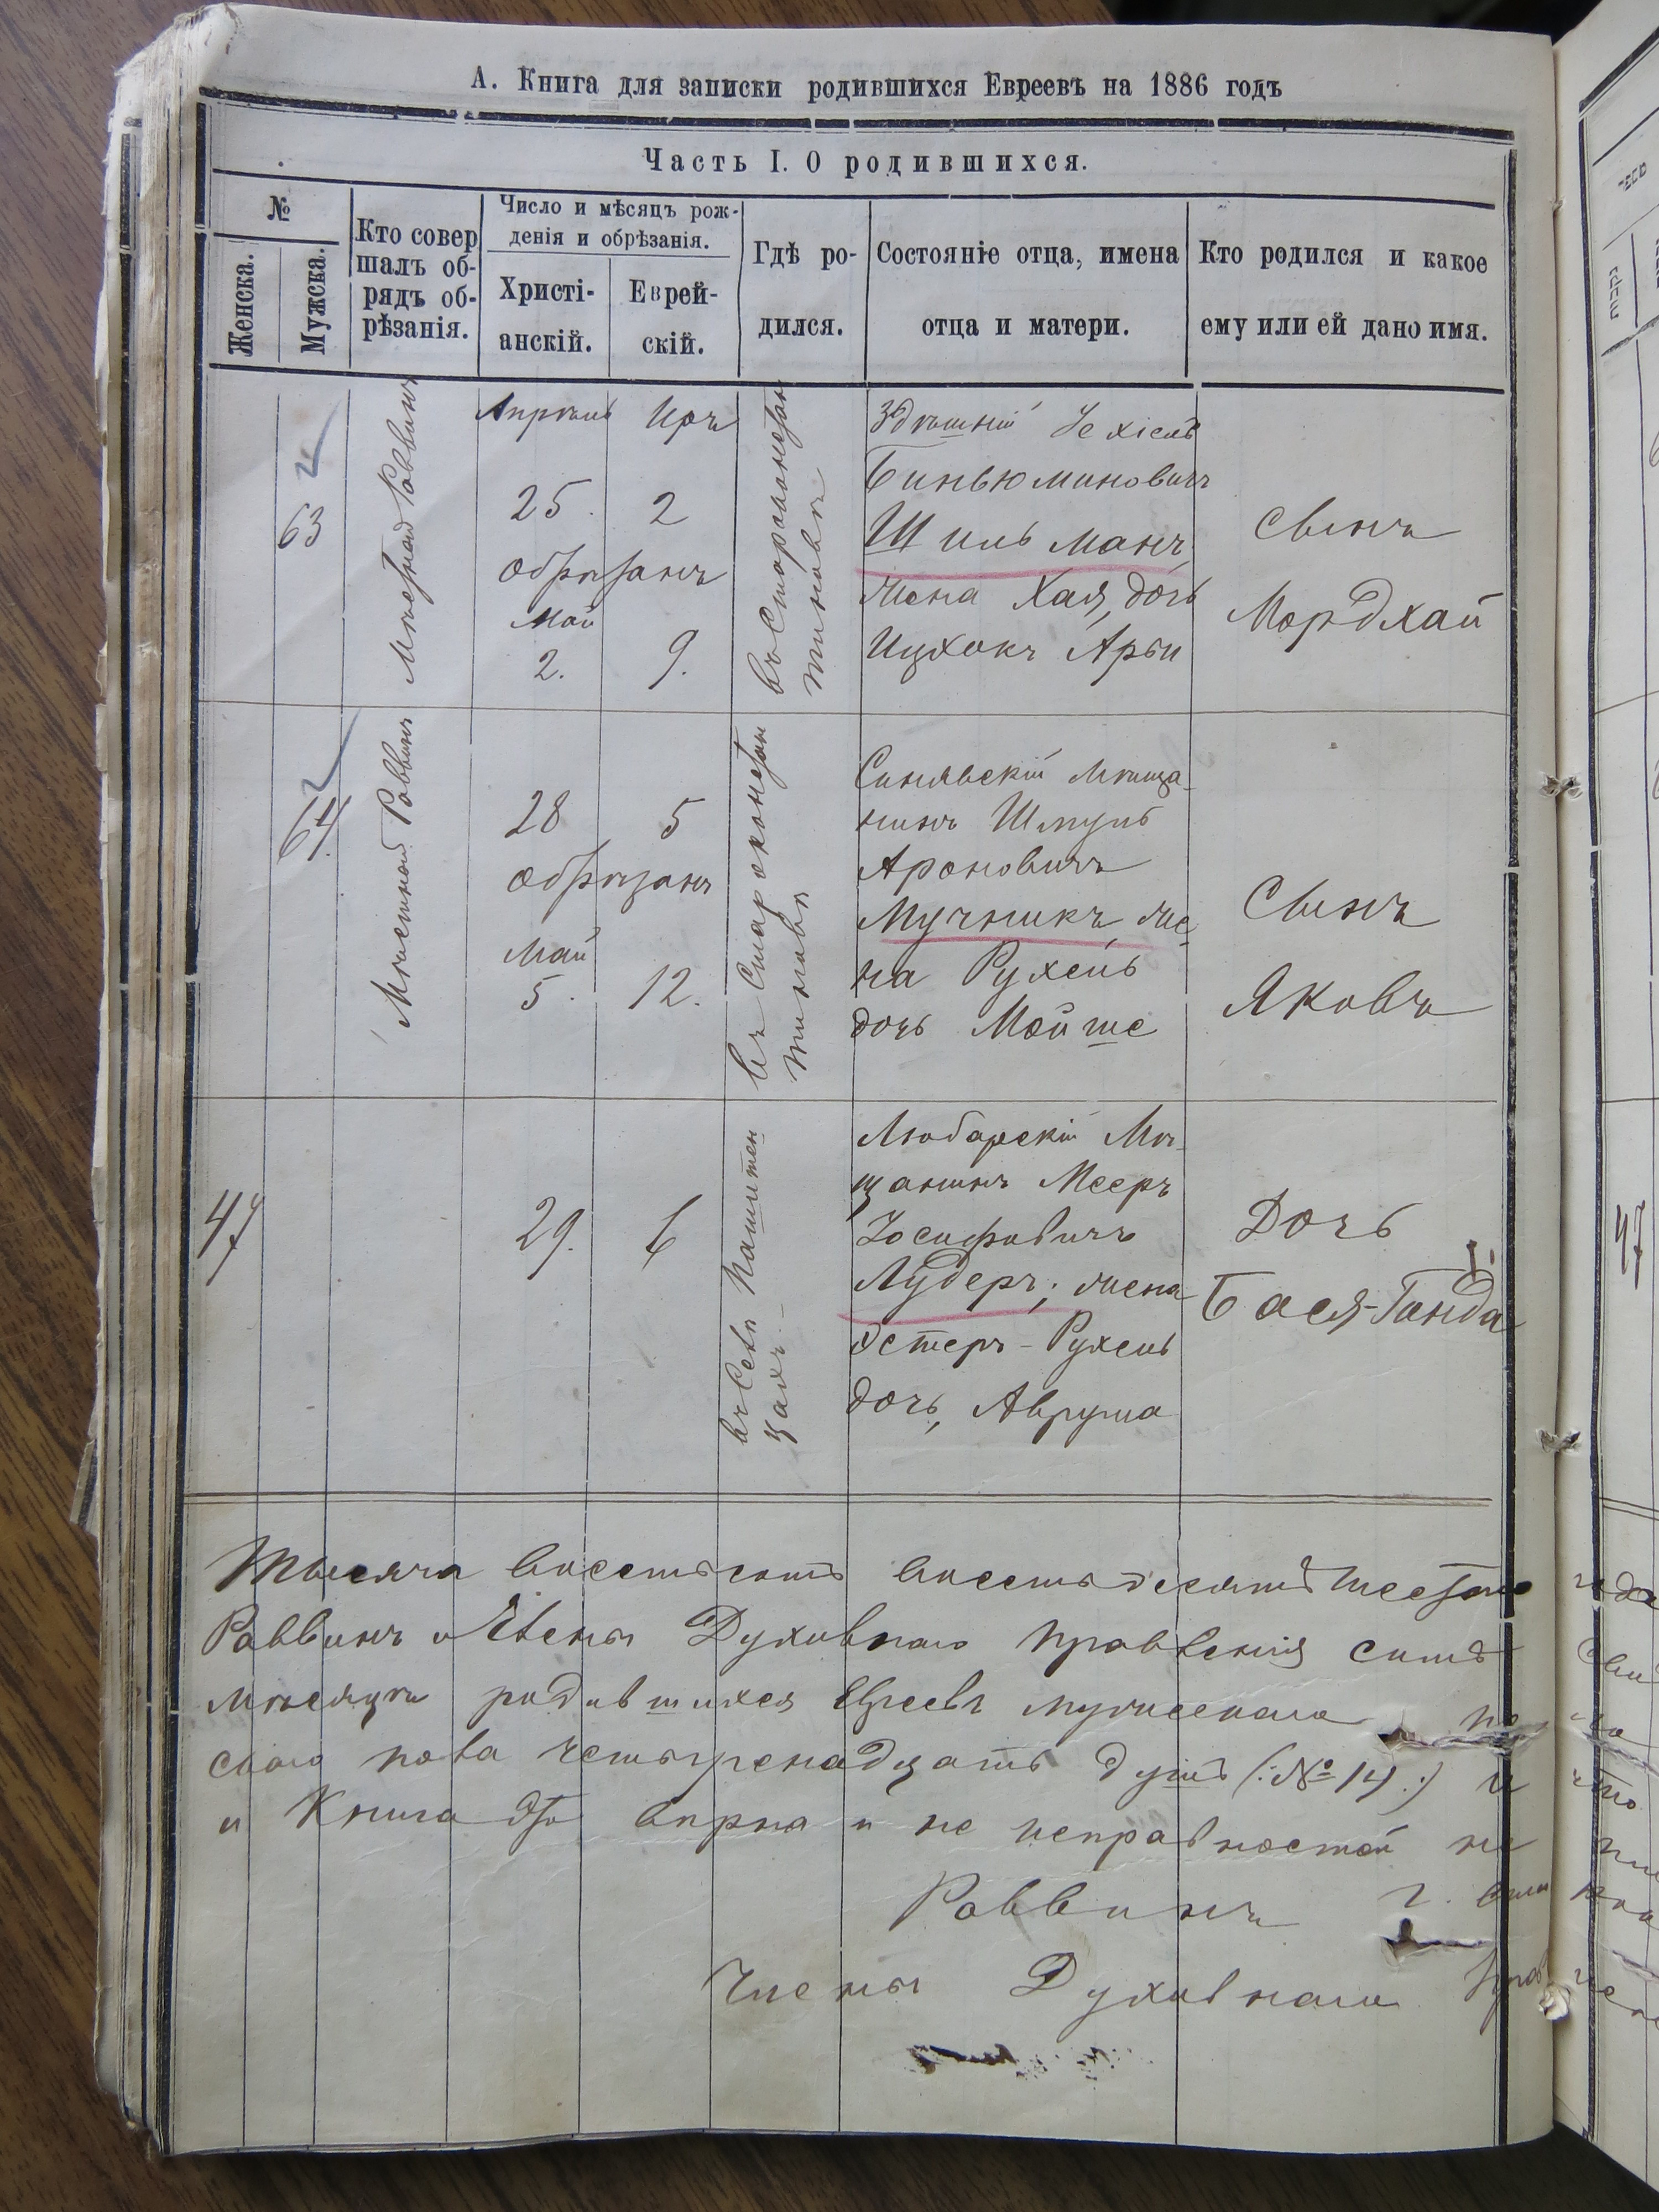 А. Книга для записки родившихся Евреевъ на 1886 годъ
Часть I. О родившихся.
№
Женска.
Мужска.
Кто совер
шалъ об-
рядъ об-
рѣзанія.
Число и мѣсяцъ рож-
денія и обрѣзанія.
Христі-
анскій.
Еврей-
скій.
Гдѣ ро-
дился.
Состояніе отца, имена
отца и матери.
Кто родился и какое
ему или ей дано имя.
63
Мѣстной Раввинъ
Апрѣль
25.
Обрѣзанъ
Май
2.
Иръ
2
9.
въ Староконстан
тиновѣ
Здѣшній Іехіель
Биньюминовичъ
Шильманъ
жена Хая, дочь
Ицхокъ Арьи
Сынъ
Мордхай
64.
Мѣстной Раввинъ
28
Обрѣзанъ
Май
5.
5
12.
въ Староконстан
тиновѣ
Синявскій Мѣща-
нинъ Шмуль
Ароновичъ
Мучникъ, же-
на Рухель
дочь Мойше
Сынъ
Яковъ
47
29.
6
Любарскій Мѣ-
щанинъ Мееръ
Іосифовичъ
Лудеръ; жена
Эстеръ-Рухель
дочь, Аврума
Дочь
Бася-Гинда
47
Тысяча восемьсотъ восемьдесятъ шестого года
Раввинъ и Члены Духовнаго Правленія симъ
мѣсяцѣ родившихся Евреевъ мужескаго
скаго пола четырнадцать душъ (:№ 14.:) и что
и Книга эта вѣрна и не исправностей не
Раввинъ
Члены Духовнаго